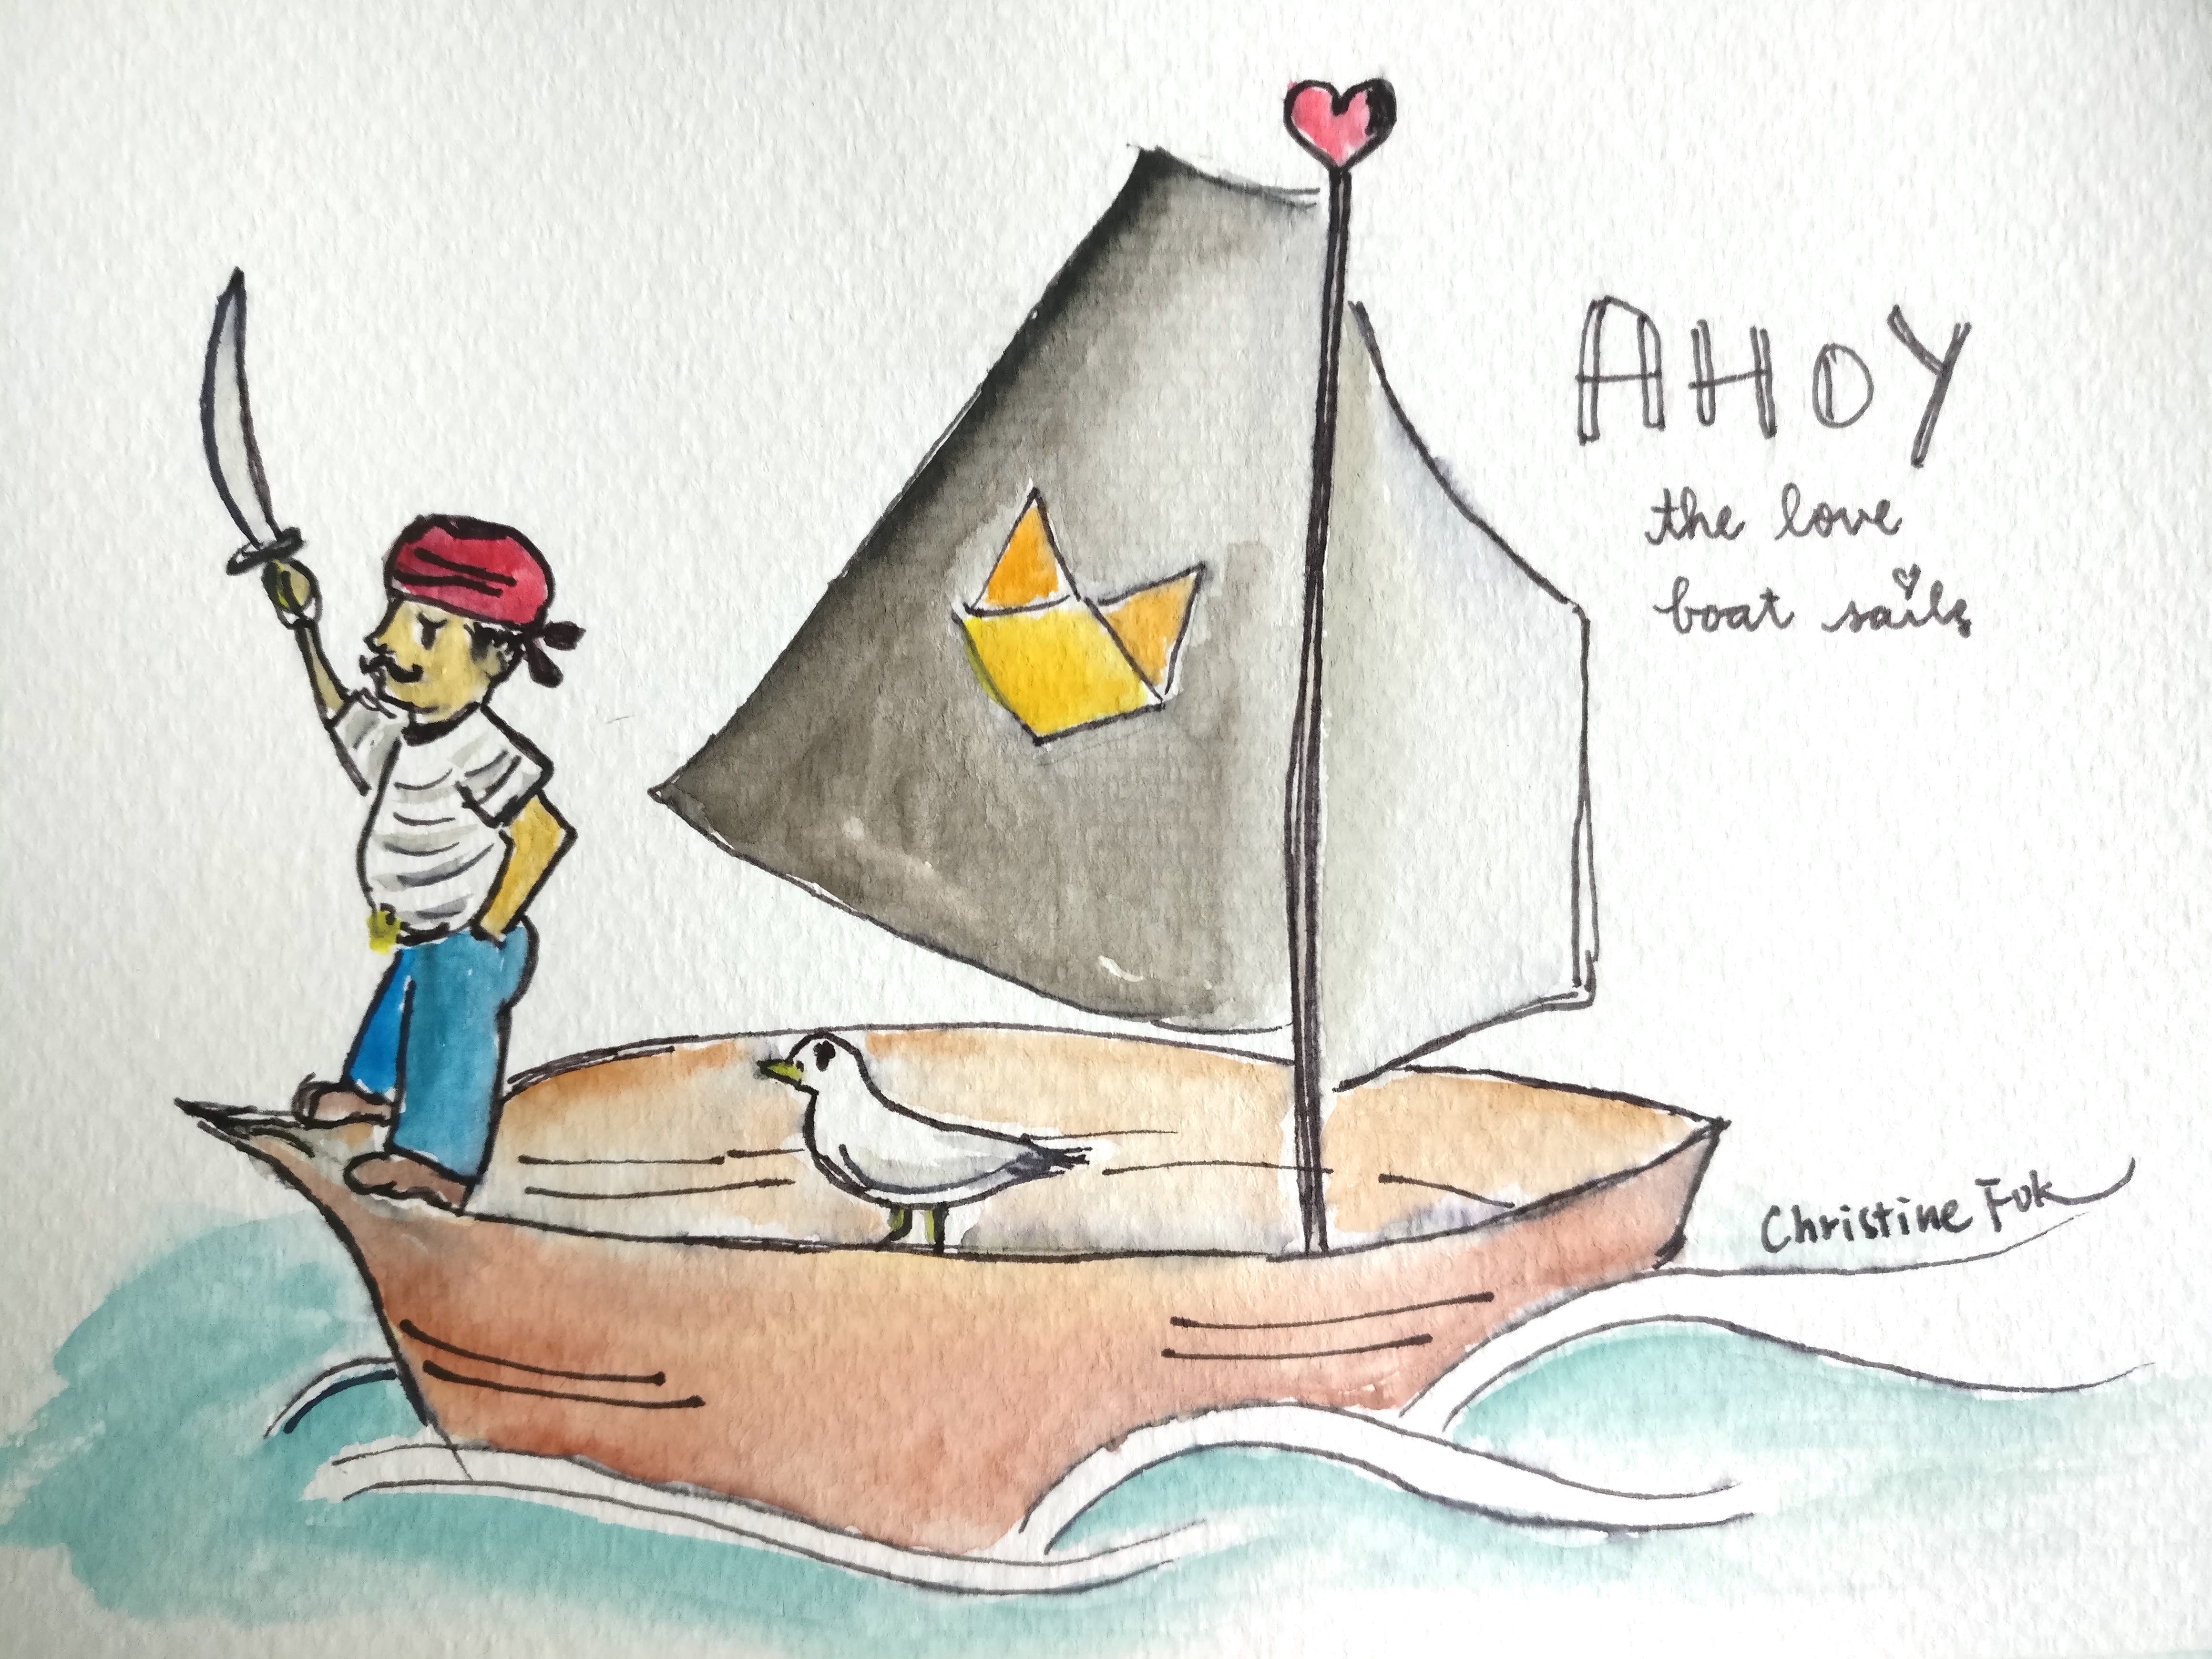 AHOY
the love
boat sails
Christine Fok